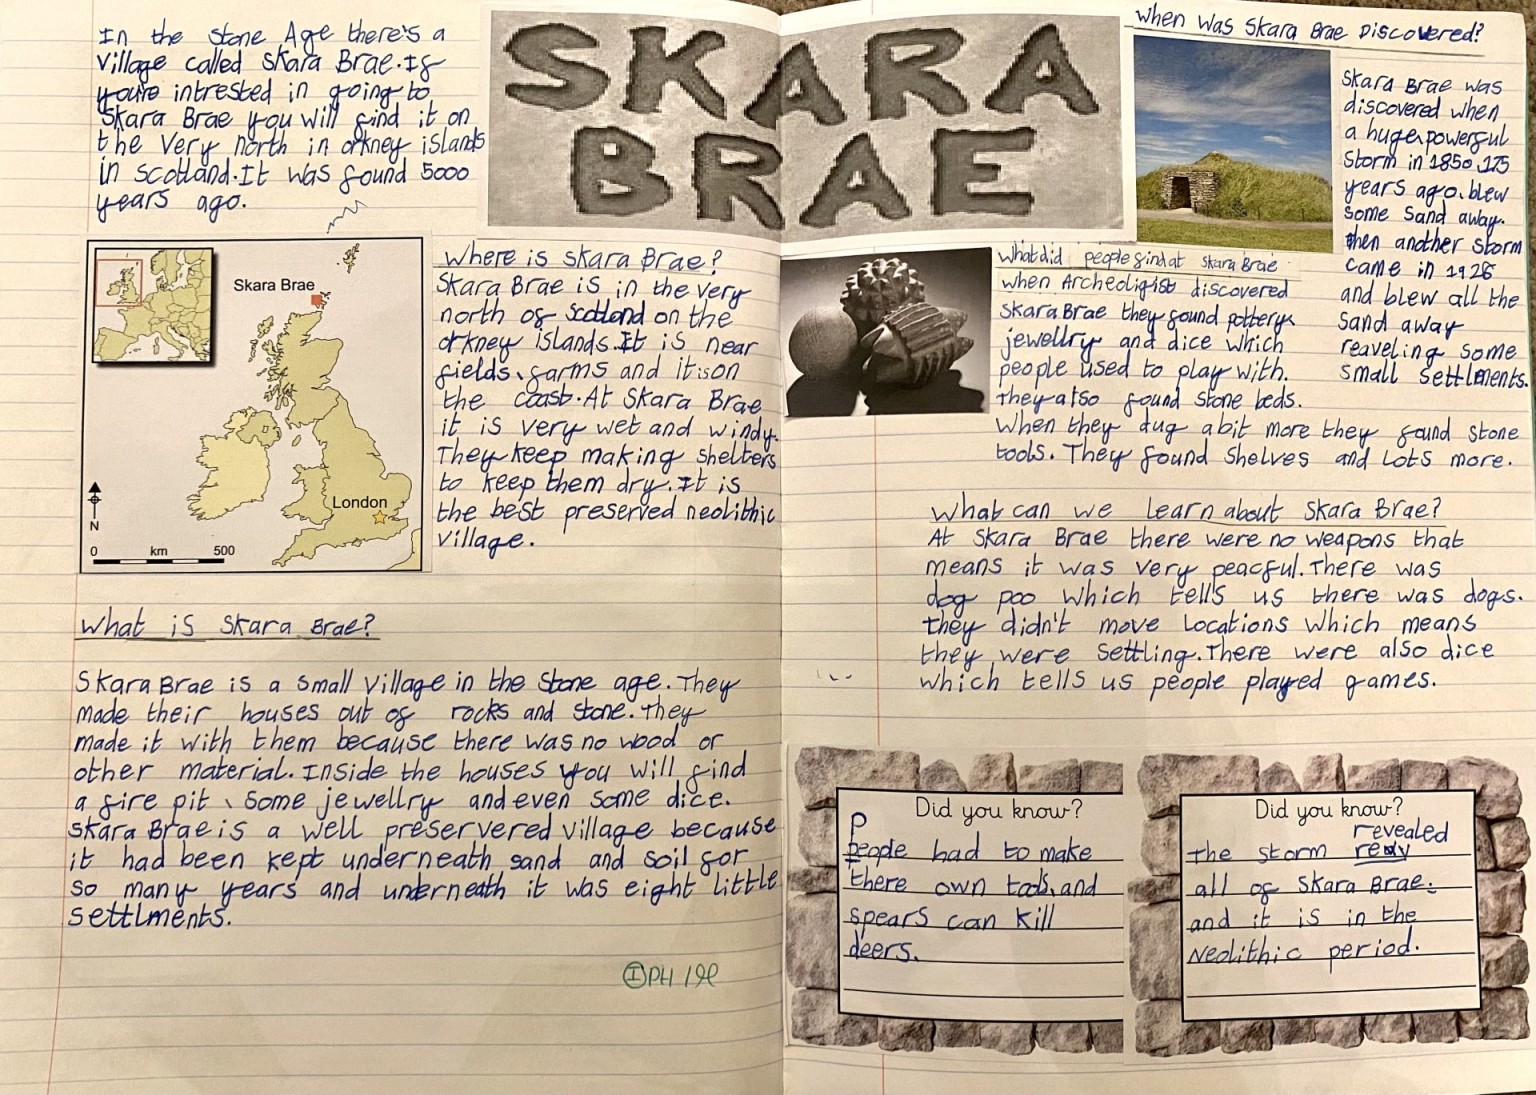 In the Stone Age there's a
village called Skara Brae. If
you're intrested in going to
Skara Brae you will find it on
the very north in orkney islands
in scotland. It was found 5000
years ago.
SKARA
BRAE
Skara Brae
London
N
0 km 500
Where is Skara Brae?
Skara Brae is in the very
north of scotland on the
orkney islands. It is near
fields, farms and it is on
the coast. At Skara Brae
it is very wet and windy.
They keep making shelters
to keep them dry. It is
the best preserved neolithic
village.
What is Skara Brae?
Skara Brae is a small village in the Stone age. They
made their houses out of rocks and stone. They
made it with them because there was no wood or
other material. Inside the houses you will find
a fire pit, some jewellry and even some dice.
Skara Brae is a well preserved village because
it had been kept underneath sand and soil for
so many years and underneath it was eight little
settlments.
When was Skara Brae Discovered?
Skara Brae was
discovered when
a huge, powerful
storm in 1850, 175
years ago, blew
some sand away.
then another storm
came in 1926
and blew all the
sand away
reaveling some
small settlments.
What did people find at Skara Brae
when Archeoligist discovered
Skara Brae they found pottery,
jewellry and dice which
people used to play with.
They also found stone beds.
When they dug a bit more they found stone
tools. They found shelves and lots more.
What can we learn about Skara Brae?
At Skara Brae there were no weapons that
means it was very peacful. There was
dog poo which tells us there was dogs.
they didn't move locations which means
they were settling. There were also dice
which tells us people played games.
Did you know?
P
people had to make
there own tools, and
spears can kill
deers.
Did you know?
revealed
the storm
all of Skara Brae.
and it is in the
Neolithic period.